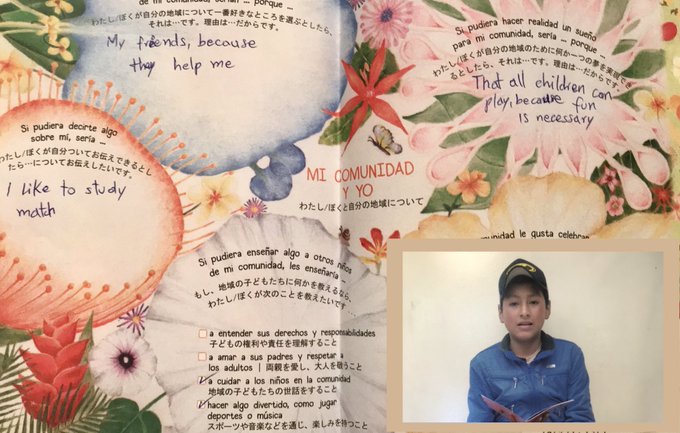 de mi comunidad, serían ... porque ...
わたし/ぼくが自分の地域について一番好きなところを選ぶとしたら、
それは…です。理由は…だからです。
My friends, because
they help me
Si pudiera hacer realidad un sueño
para mi comunidad, sería ... porque ...
わたし/ぼくが自分の地域のために何か一つの夢を実現でき
るとしたら、それは…です。理由は…だからです。
That all children can
play, because fun
is necessary
Si pudiera decirte algo
sobre mí, sería ...
わたし/ぼくが自分ついてお伝えできるとし
たら…についてお伝えしたいです。
I like to study
match
MI COMUNIDAD
Y YO
わたし/ぼくと自分の地域について
Si pudiera enseñar algo a otros niños
de mi comunidad, les enseñaría ...
もし、地域の子どもたちに何かを教えるなら、
わたし/ぼくが次のことを教えたいです…
a entender sus derechos y responsabilidades
子どもの権利や責任を理解すること
a amar a sus padres y respetar a
los adultos | 両親を愛し、大人を敬うこと
a cuidar a los niños en la comunidad
地域の子どもたちの世話をすること
hacer algo divertido, como jugar
deportes o música
スポーツや音楽などを通じ、楽しみを持つこと
comunidad le gusta celebrar